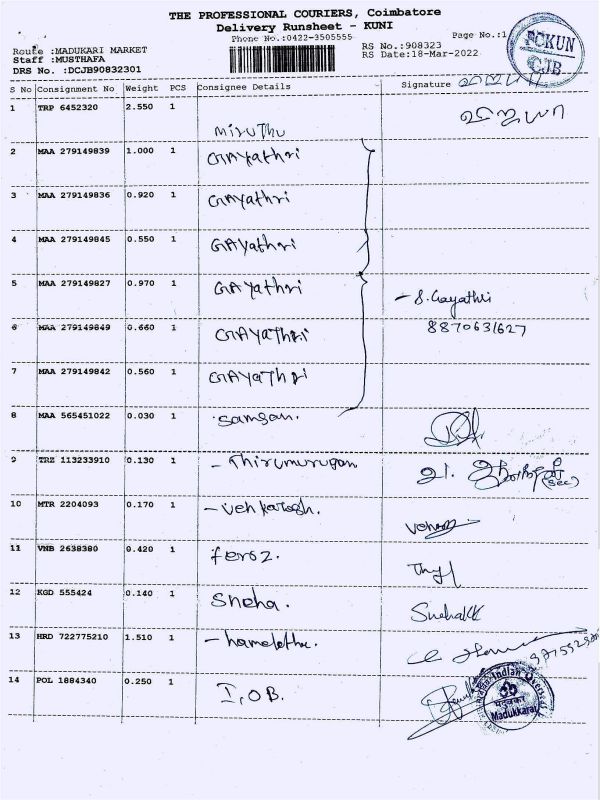 THE PROFESSIONAL COURIERS, Coimbatore
Delivery Runsheet - KUNI
Phone No.:0422-3505555
Page No.:1
Route :MADUKARI MARKET
RS No.:908323
Staff :MUSTHAFA
RS Date:18-Mar-2022
DRS No. :DCJB90832301
PCKUN
CJB
S No Consignment No Weight PCS Consignee Details Signature
1 TRP 6452320 2.550 1 Miruthu
2 MAA 279149839 1.000 1 GAYathri
3 MAA 279149836 0.920 1 GAYathri
4 MAA 279149845 0.550 1 GAYathri
5 MAA 279149827 0.970 1 GAYathri - S. Gayathri
6 MAA 279149849 0.660 1 GAYAThri 8870631627
7 MAA 279149842 0.560 1 GAYAThri
8 MAA 565451022 0.030 1 Samson.
9 TRZ 113233910 0.130 1 - Thirumurugan (sec)
10 MTR 2204093 0.170 1 - Venkatesh.
11 VNB 2638380 0.420 1 feroz.
12 KGD 555424 0.140 1 Sneha. SnehaKK
13 HRD 722775210 1.510 1
14 POL 1884340 0.250 1 I.O.B.
Indian Overseas
Madukkarai